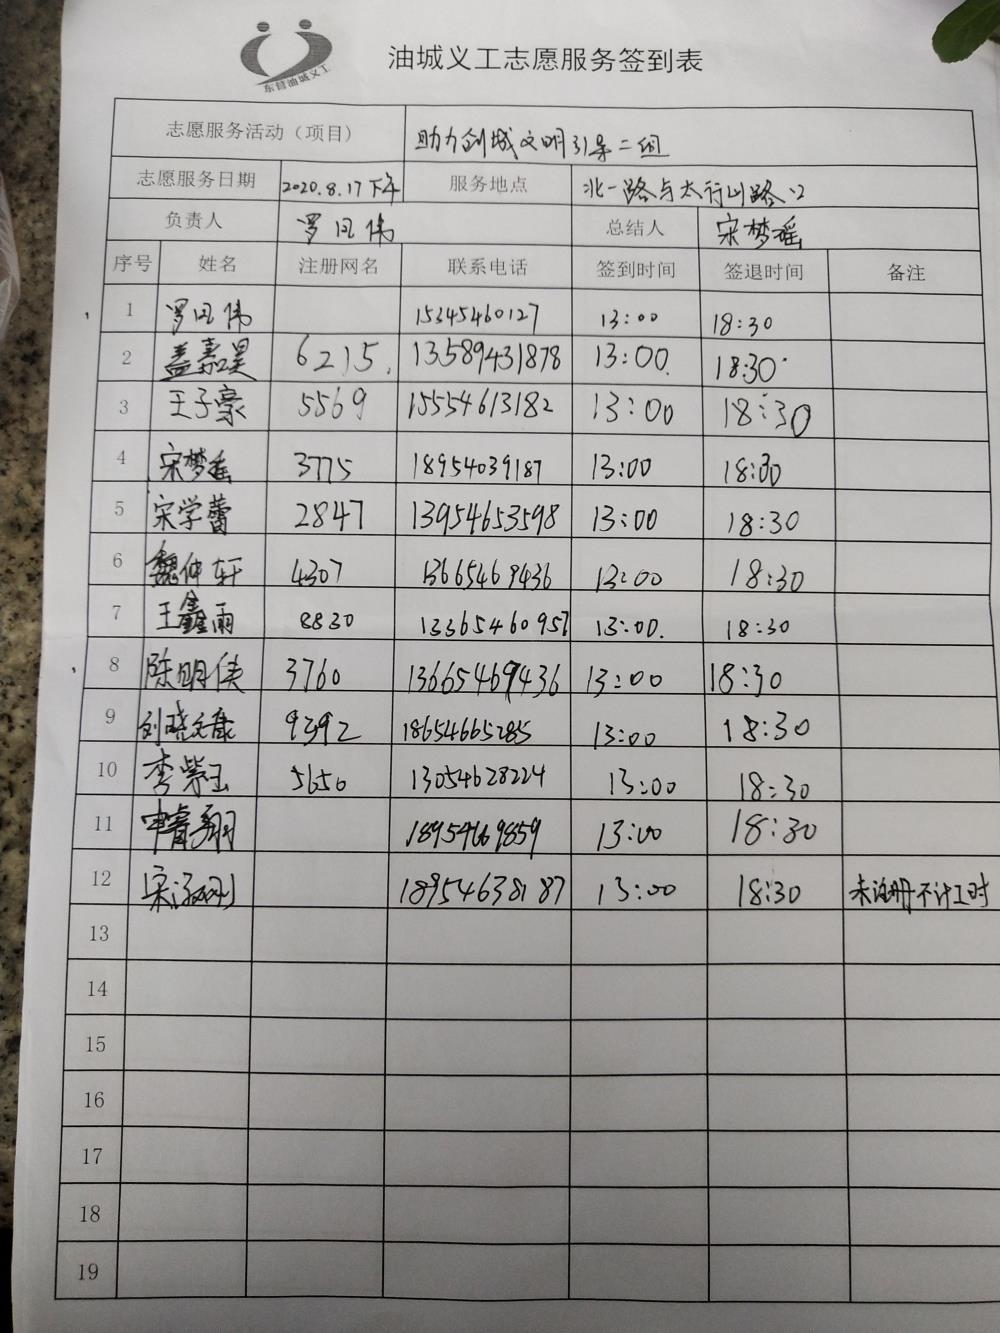 东营油城义工
油城义工志愿服务签到表
志愿服务活动（项目） 助力创城文明引导二组
志愿服务日期 2020.8.17下午 服务地点 北一路与太行山路口
负责人 罗同伟 总结人 宋梦瑶
序号 姓名 注册网名 联系电话 签到时间 签退时间 备注
1 罗同伟 15345460127 13:00 18:30
2 盖嘉昊 6215. 13589431878 13:00. 18:30
3 王子豪 5569 15554613182 13:00 18:30
4 宋梦瑶 3775 18954039187 13:00 18:30
5 宋学蕾 2847 13954653598 13:00 18:30
6 魏仲轩 4307 13665469436 13:00 18:30
7 王鑫雨 8830 13365460957 13:00. 18:30
8 陈明侠 3760 13665469436 13:00 18:30
9 刘晓文康 9392 18654665285 13:00 18:30
10 李紫玉 5650 13054628224 13:00 18:30
11 申睿翔 18954669859 13:00 18:30
12 宋 18954638187 13:00 18:30 未注册不计工时
13
14
15
16
17
18
19